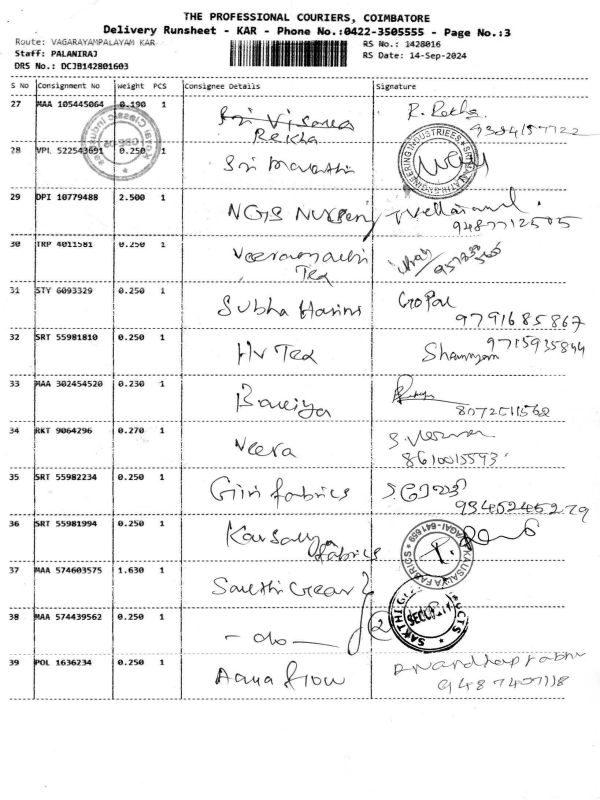 THE PROFESSIONAL COURIERS, COIMBATORE
Delivery Runsheet - KAR - Phone No.:0422-3505555 - Page No.:3
Route: VAGARAYAMPALAYAM KAR
RS No.: 1428016
Staff: PALANIRAJ
RS Date: 14-Sep-2024
DRS No.: DCJB142801603
S No Consignment No Weight PCS Consignee Details Signature
27 MAA 105445064 0.190 1 Rekha R. Rekha
9384157722
28 VPL 522543691 0.250 1 Sri Maruthi
29 DPI 10779488 2.500 1 NGS Nursery
9487712505
30 TRP 4011581 0.250 1 Tex
31 STY 6093329 0.250 1 Subha Gopal
9791685867
32 SRT 55981810 0.250 1 HV Tex
9715935844
33 MAA 302454520 0.230 1
8072511562
34 RKT 9064296 0.270 1 Veera
8610015593
35 SRT 55982234 0.250 1 Giri fabrics
9345245279
36 SRT 55981994 0.250 1 Kausalya fabrics
KAUSALYA FABRICS
37 MAA 574603575 1.630 1 Sakthi Gear
38 MAA 574439562 0.250 1 - do - 2
39 POL 1636234 0.250 1 Aqua flow Anandhaprabhu
9487407118